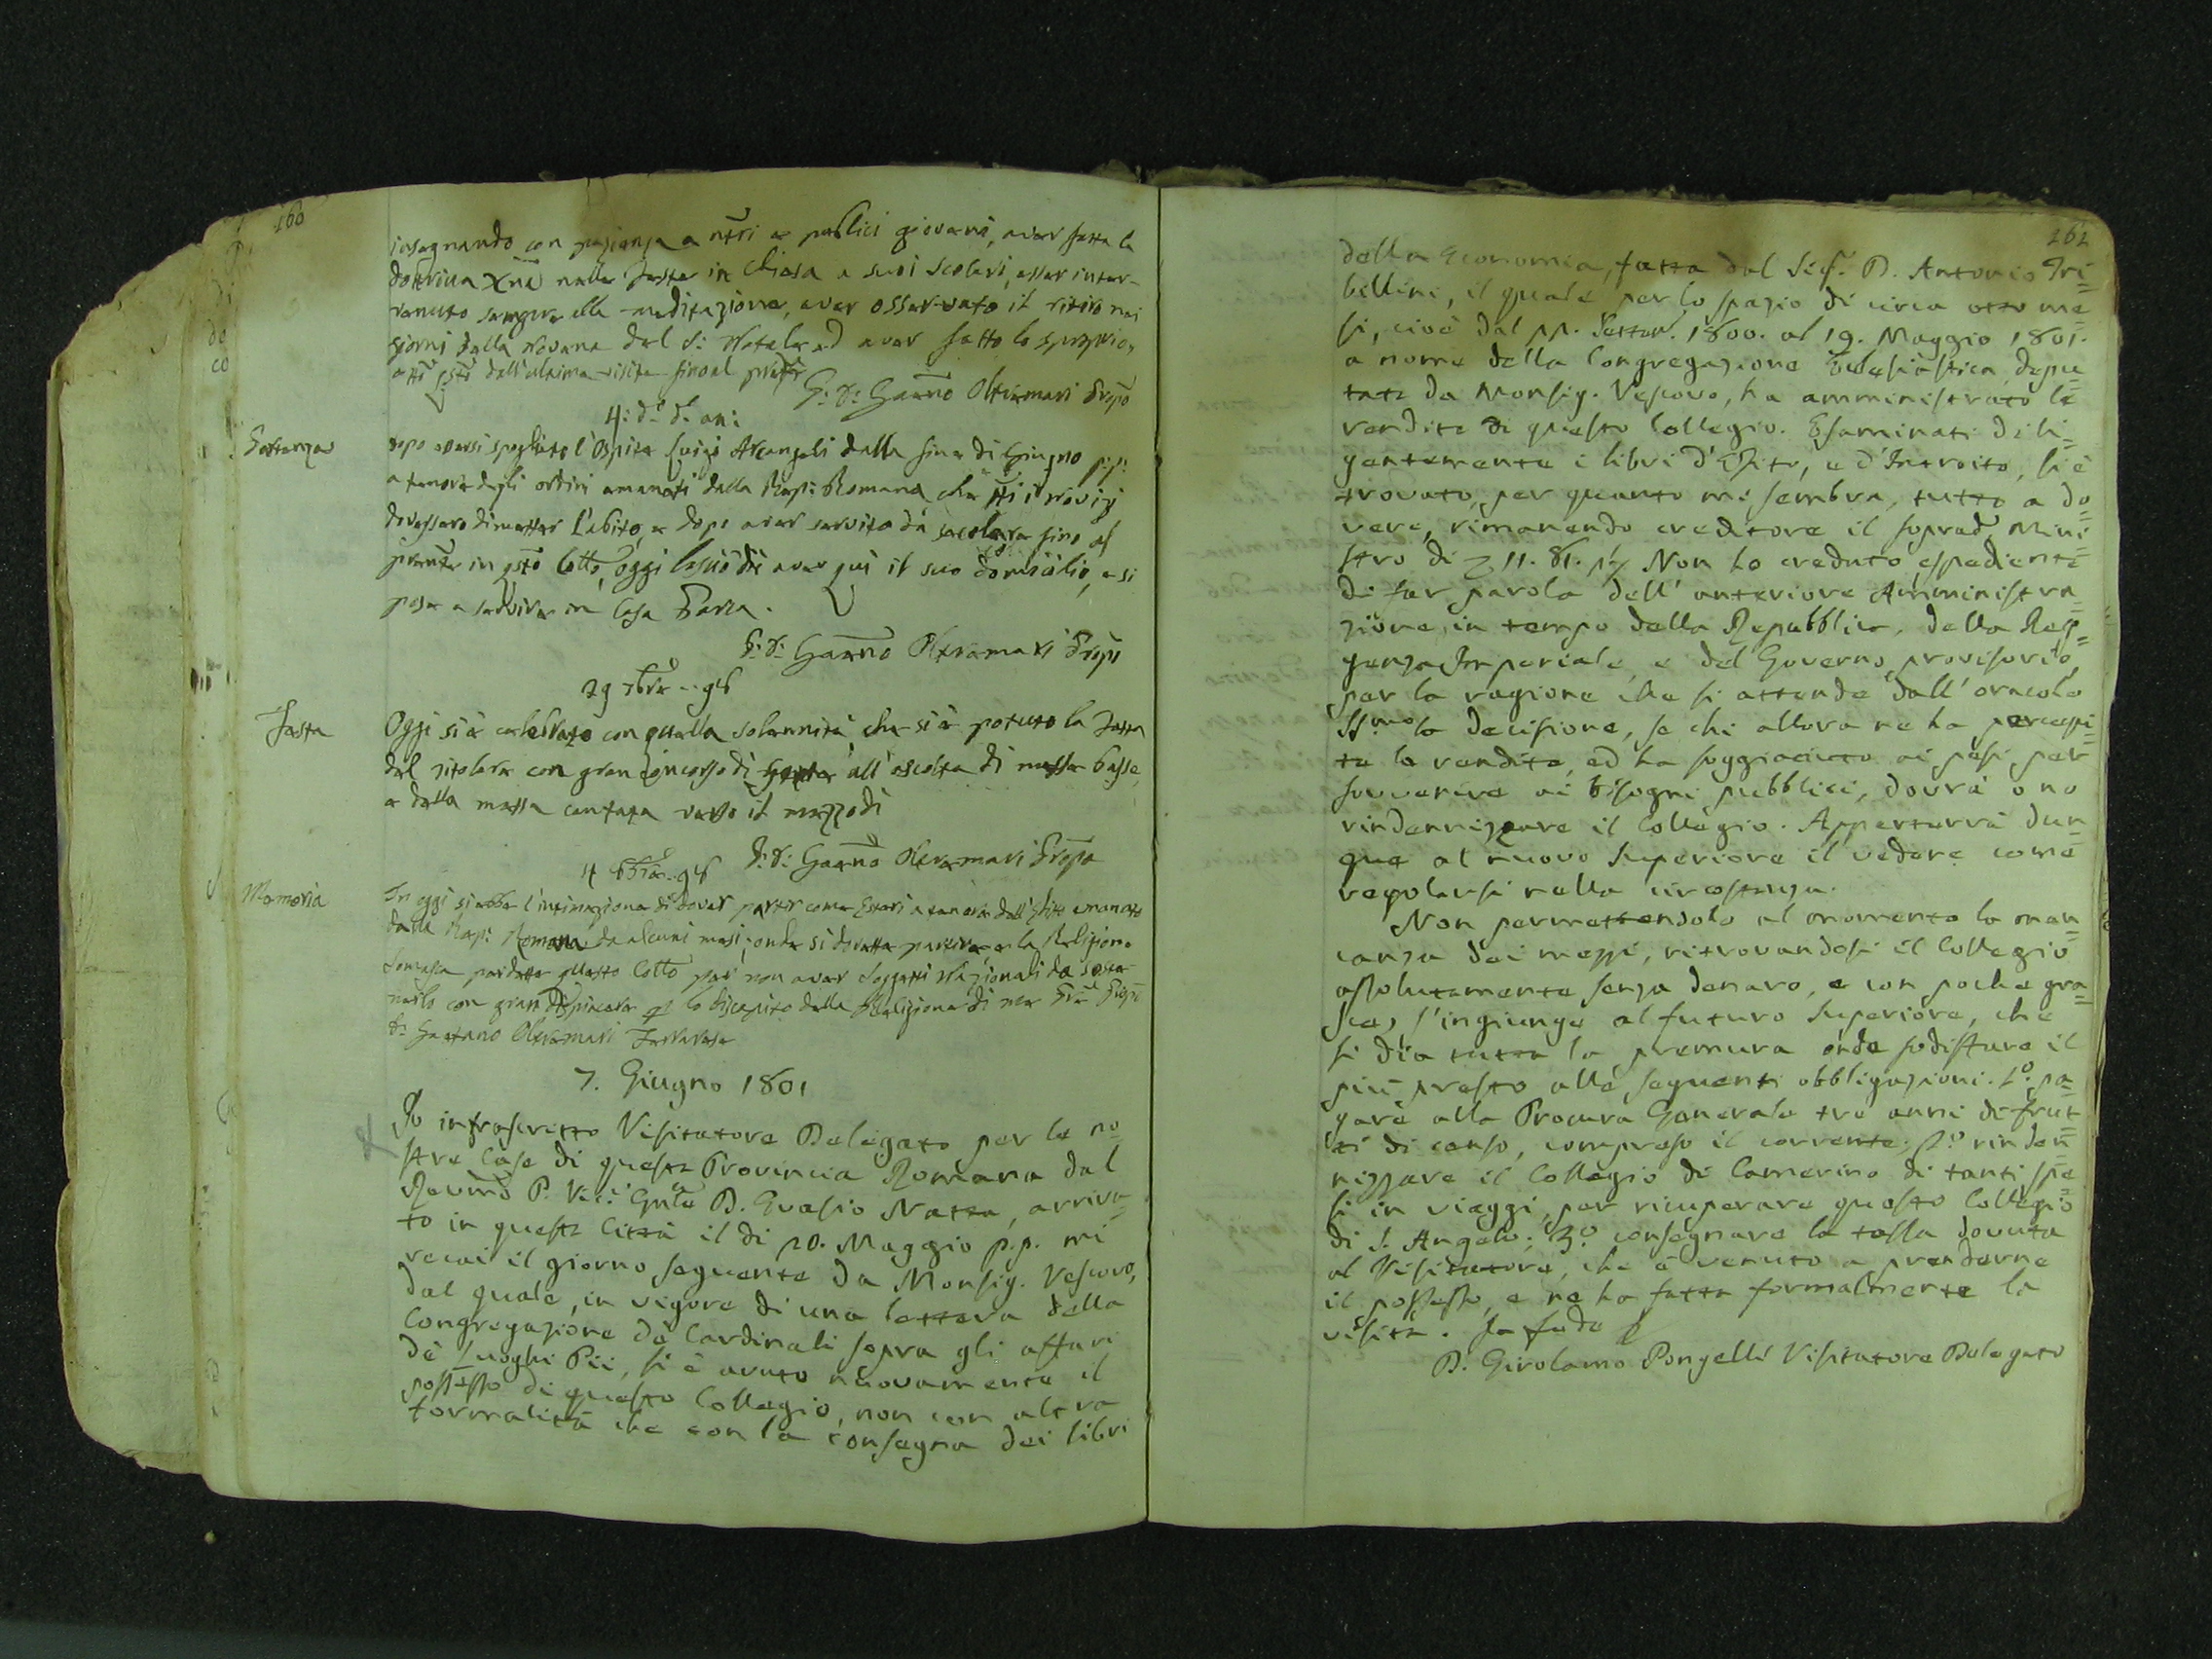 160
insegnando con pazienza a ntri e publici giovani, aver fatta la
dottrina Xna nelle feste in Chiesa a suoi Scolari, esser inter-
venuto sempre alla meditazione, aver osservato il ritiro nei
giorni della Novena del S: Natale ed aver fatto lo
dell'ultima visita fino al
G: D: Gaetno Oltremari Prepo
4: do do an:
dopo aversi spogliato l'Ospite Luigi Arcangeli dalla fine di Giugno p:p:
a tenore degli ordini emanati dalla Rep: Romana, che tti i Novizj
dovessero dimetter l'abito, e dopo aver servito da secolare fino al
presente in qsto Collo, oggi lasciò di aver qui il suo domicilio, e si
pose a servire in Casa
P: D: Gaetno Oltremari Prepo
29 7bre 98
Festa
Oggi si è celebrato con quella solennità che si è potuto la festa
del titolare con gran concorso di gente all'ascolta di messe basse,
e della messa cantata verso il mezzodì
P: D: Gaetno Oltremari Prepo
4 8bre 98
Memoria
In oggi si ebbe l'intimazione di dover partir come Esteri a tenore dell'Editto emanato
dalla Rep: Romana da alcuni mesi; onde si dovette partire, e la Religione
Somasca perdette questo Collo per non aver Soggetti Nazionali da soste-
nerlo con gran dispiacere lo discapito della Religione di me
D: Gaetano Oltremari Ferrarese
7. Giugno 1801
Io infrascritto Visitatore Delegato per le no=
stre Case di questa Provincia Romana dal
Revmo P. Vic: Gnle D. Evasio Natta, arriva=
to in questa Città il dì 20. Maggio p.p. mi
recai il giorno seguente da Monsig. Vescovo,
dal quale, in vigore di una lettera della
Congregazione de' Cardinali sopra gli affari
de' Luoghi Pii, si è avuto nuovamente il
possesso di questo Collegio, non con altra
formalità che con la consegna dei libri
161
della economia, fatta dal Sig. D. Antonio Tri=
bellini, il quale per lo spazio di circa otto me=
si, cioè dal 22. Settem. 1800. al 19. Maggio 1801.
a nome della Congregazione Eclesiastica depu=
tata da Monsig. Vescovo, ha amministrato le
rendite di questo Collegio. Esaminati dili=
gentemente i libri d'Esito, e d'Introito, si è
trovato, per quanto mi sembra, tutto a do=
vere, rimanendo creditore il soprad. Mini=
stro di 11. 81. Non ho creduto espediente
di far parola dell'anteriore Amministra=
zione, in tempo della Repubblica, della Reg=
genza Imperiale, e del Governo provisorio,
per la ragione che si attende dall'oracolo
SSmo la decisione, se chi allora ne ha percepi=
te le rendite, ed ha soggiaciuto ai pesi per
sovvenire ai bisogni pubblici, dovrà o no
rindennizzare il Collegio. Apperterrà dun=
que al nuovo Superiore il vedere come
regolarsi nella circostanza.
Non permettendolo al momento la man=
canza dei mezzi, ritrovandosi il Collegio
assolutamente senza denaro, e con poche gra=
sce, s'ingiunge al futuro Superiore, che
si dia tutta la premura onde sodisfare il
più presto alle seguenti obbligazioni. 1o. pa=
gare alla Procura Generale tre anni di frut=
ti di censo, compreso il corrente; 2o rinden=
nizzare il Collegio di Camerino di tanti spe=
si in viaggi, per ricuperare questo Collegio
di S. Angelo; 3o consegnare la tassa dovuta
al Visitatore, che è venuto a prenderne
il possesso, e ne ha fatta formalmente la
visita. In fede
D. Girolamo Pongelli Visitatore Delegato